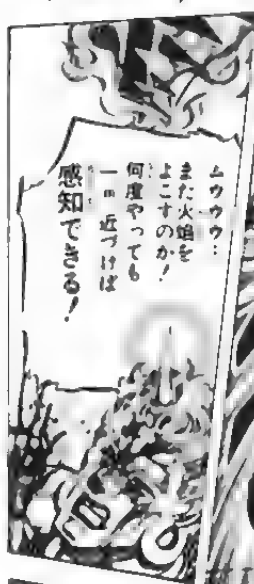 ムウウウ…
また火焔を
よこすのか!
何度やっても
一m近づけば
感知できる!